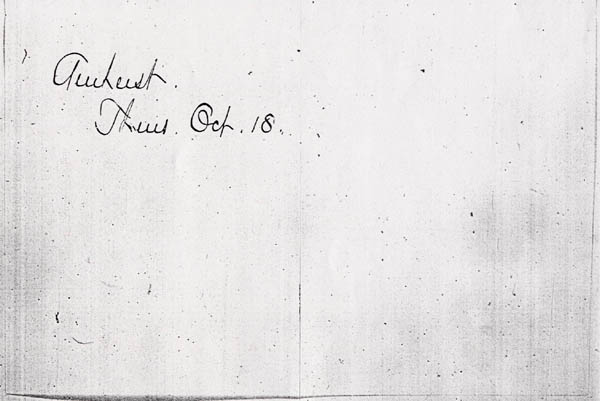 Amherst.
Thurs. Oct. 18.